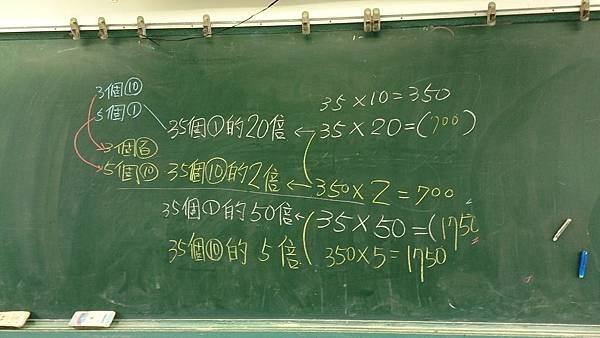 35×10=350
3個⑩
5個①
35個①的20倍 35×20=(700)
3個百
5個⑩ 35個⑩的2倍 350×2=700
35個①的50倍 35×50=(1750
35個⑩的5倍 350×5=1750